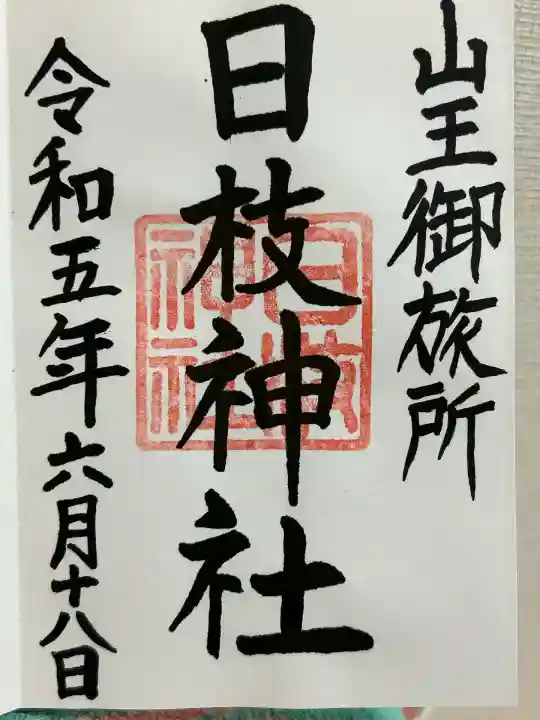 山王御旅所
日枝神社
日枝神社
令和五年六月十八日